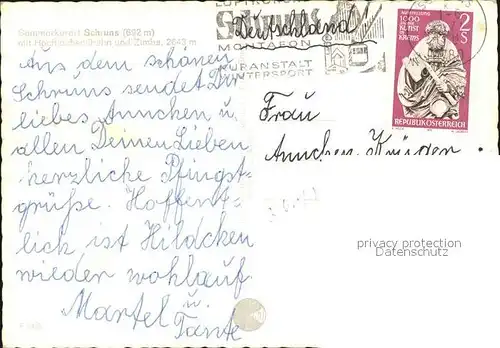 Sommerkurort Schruns (692 m)
mit Hochjochseilbahn und Zimba, 2643 m
Aus dem schönen
Schruns sendet Dir
liebes Annchen u.
allen Deinen Lieben
herzliche Pfingst-
grüße. Hoffent-
lich ist Hildchen
wieder wohlauf.
Martel u.
Tante
Deutschland
MONTAFON
KURANSTALT
WINTERSPORT
AUSSTELLUNG
1000 JAHRE
KUNST
IN
KREMS
2 S
REPUBLIK ÖSTERREICH
Frau
Annchen Krüder
privacy protection
Datenschutz